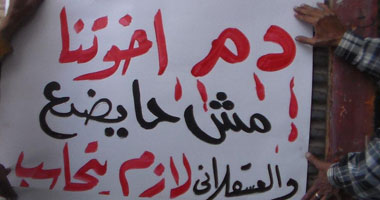 دم اخوتنا
مش حايضع
والعسقلانى لازم يتحاسب